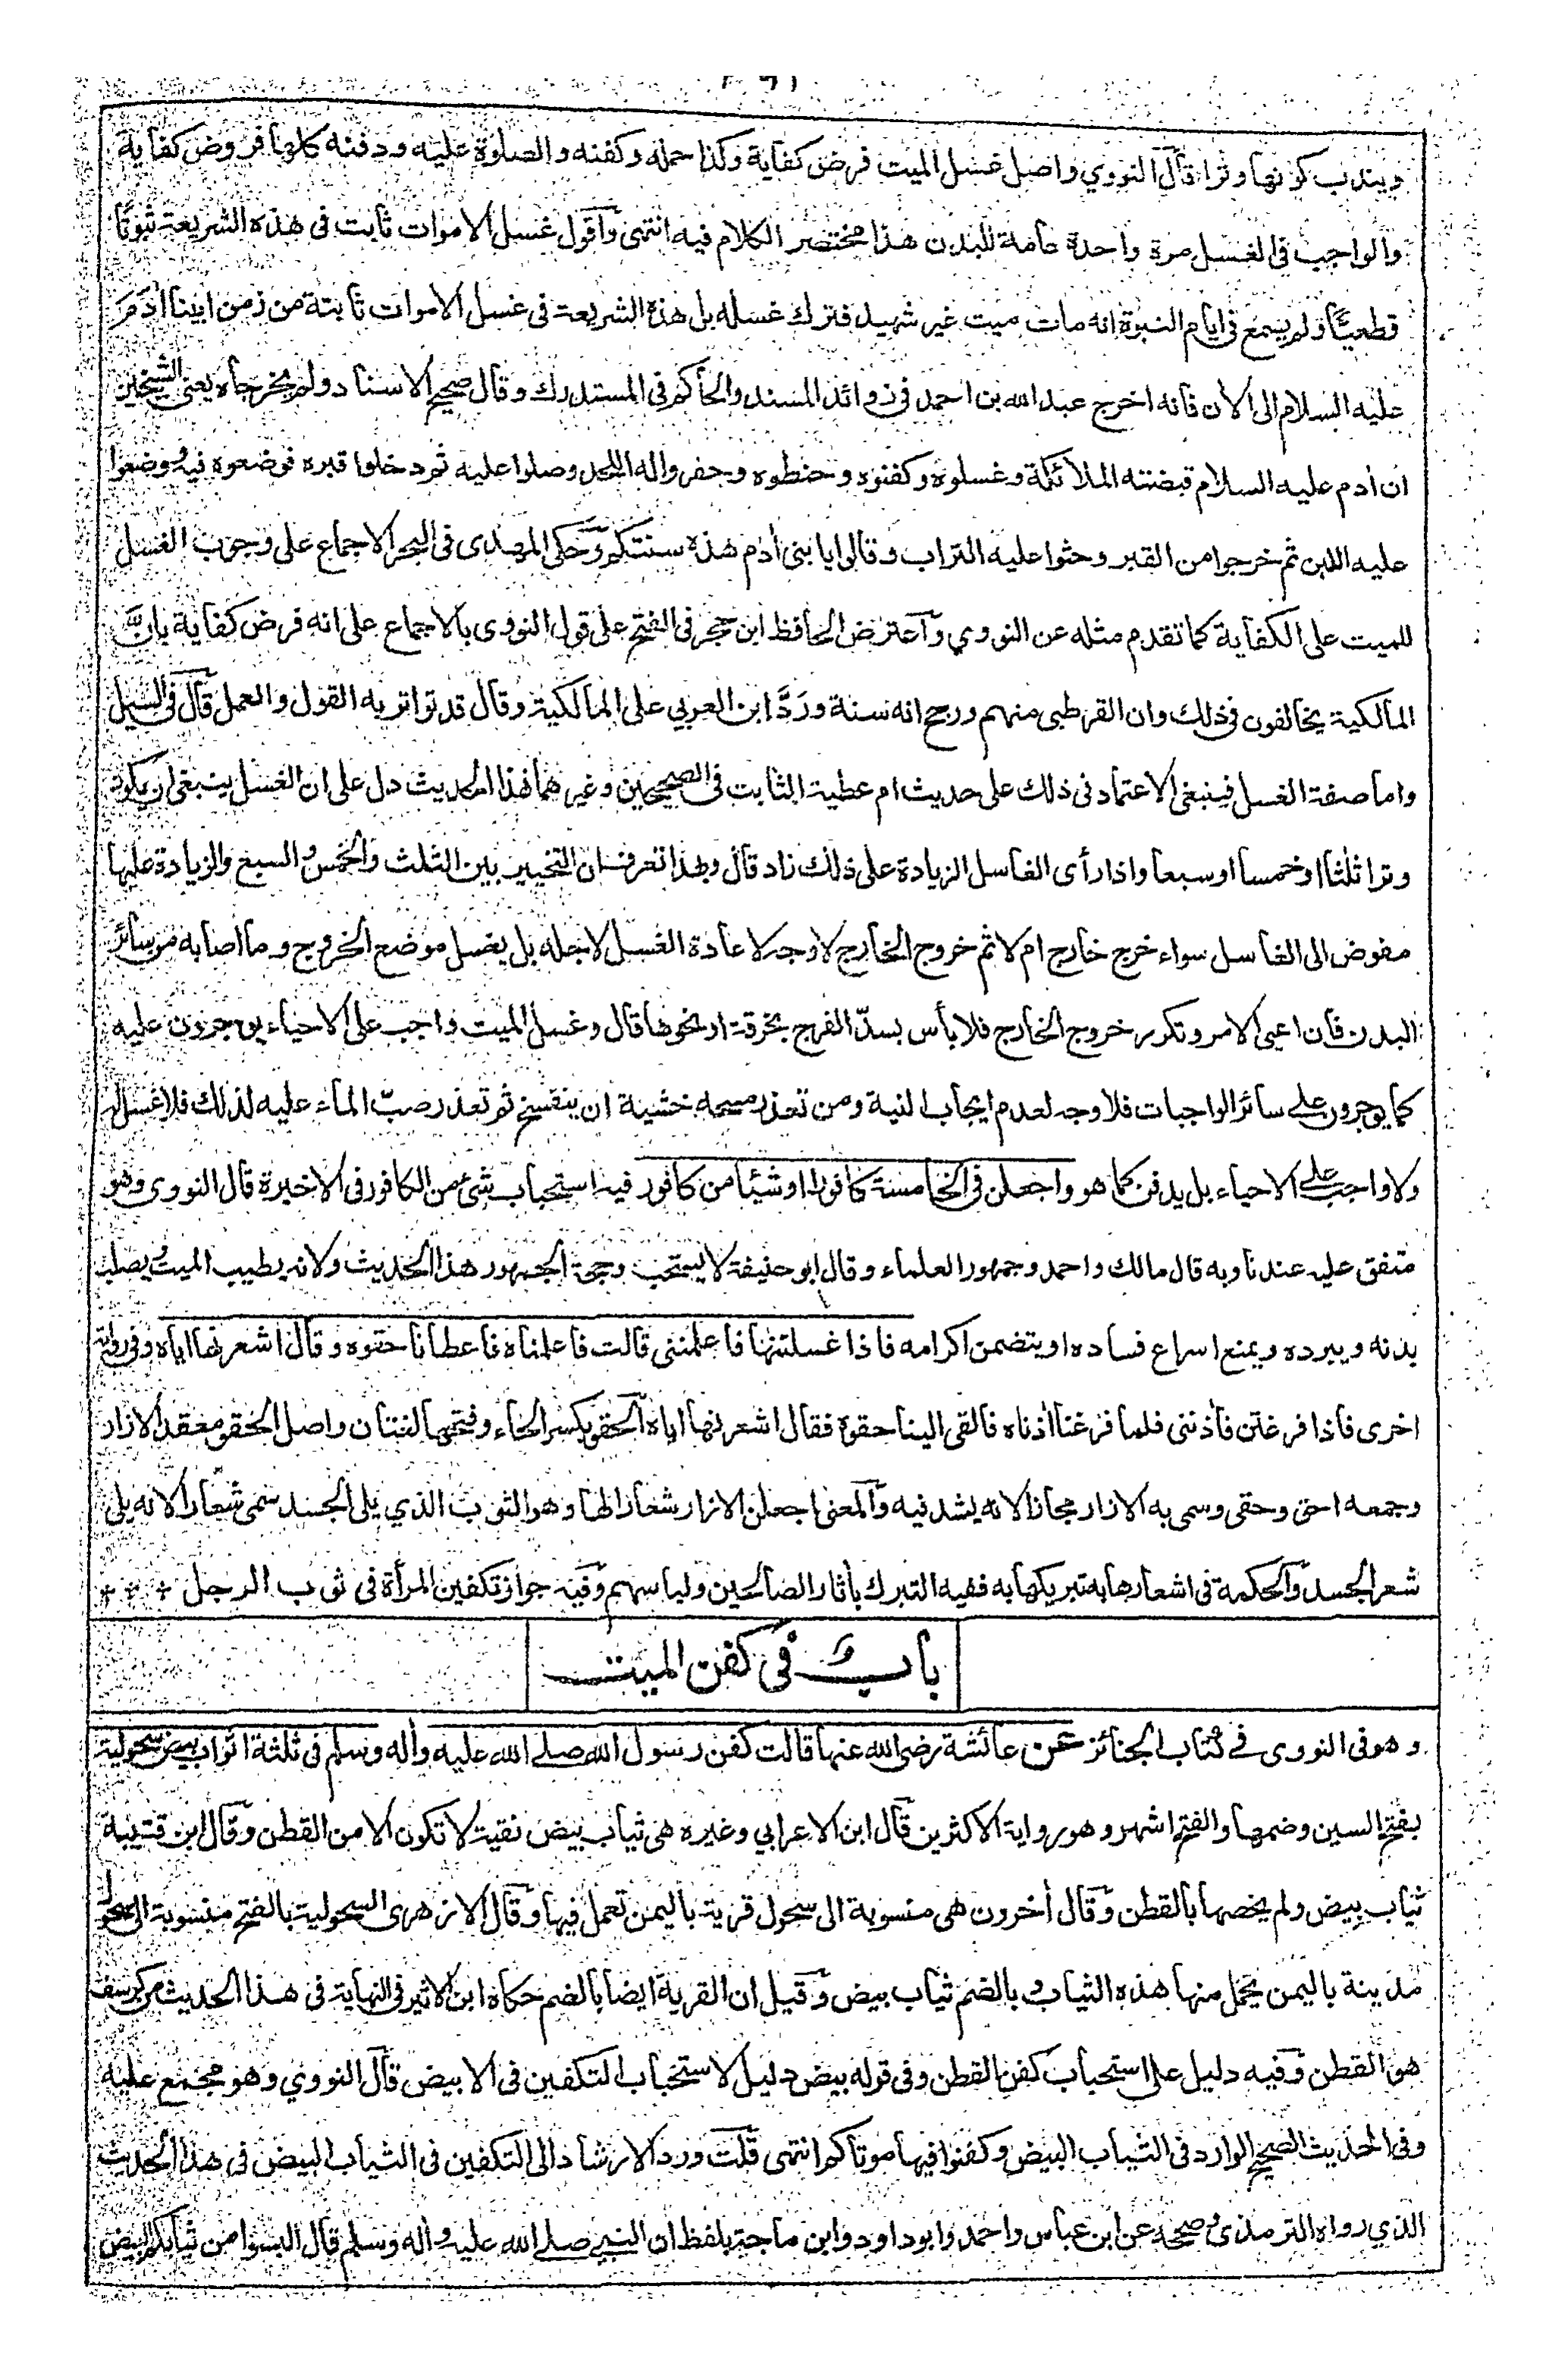 ويندب كونها وترا قال النووي واصل غسل الميت فرض كفاية وكذا حمله وكفنه والصلوة عليه ودفنه كلها فروض كفاية
والواجب فى الغسل مرة واحدة عامة للبدن هذا مختصر الكلام فيه انتهى وأقول غسل الاموات ثابت فى هذه الشريعة ثبوتًا
قطعيًّا ولم يسمع فى ايام النبوة انه مات ميت غير شهيد فترك غسله بل هذه الشريعة فى غسل الاموات ثابتة من زمن ابينا أدم
عليه السلام الى الأن فانه اخرج عبد الله بن احمد فى زوائد المسند والحاكم فى المستدرك وقال صحيح الاسناد ولم يخرجاه يعنى الشيخين
ان أدم عليه السلام قبضته الملائكة وغسلوه وكفنوه وحنطوه وحفروا له اللحد وصلوا عليه ثم دخلوا قبره فوضعوه فيه ووضعوا
عليه اللبن ثم خرجوا من القبر وحثوا عليه التراب وقالوا يا بنى أدم هذه سنتكم وحكى المهدى فى البحر الاجماع على وجوب الغسل
للميت على الكفاية كما تقدم مثله عن النووي وأعترض الحافظ ابن حجر فى الفتح على قول النووى بالاجماع على انه فرض كفاية بانّ
المالكية يخالفون فى ذلك وان القرطبى منهم ورجح انه سنة وردَّ ابن العربي على المالكية وقال قد تواتر به القول والعمل قال فى السيل
واما صفة الغسل فينبغى الاعتماد فى ذلك على حديث ام عطية الثابت فى الصحيحين وغيرهما فهذا الحديث دل على ان الغسل ينبغى ان يكون
وترا ثلثا او خمسا او سبعا واذا رأى الغاسل الزيادة على ذلك زاد قال وبهذا تعرف ان التخيير بين الثلث والخمس والسبع والزيادة عليها
مفوض الى الغاسل سواء خرج خارج ام لا ثم خروج الخارج لا وجه لاعادة الغسل لاجله بل يغسل موضع الخروج وما اصابه من سائر
البدن فان اعيى الامر وتكرر خروج الخارج فلا بأس بسدّ الفرج بخرقة او نحوها قال وغسل الميت واجب على الاحياء يوجرون عليه
كما يوجرون على سائر الواجبات فلا وجه لعدم ايجاب النية ومن تعذر مسحه خشية ان يتفسخ ثم تعذر صبّ الماء عليه لذلك فلا غسل له
ولا واجب على الاحياء بل يدفن كما هو واجعلن فى الخامسة كافورا او شيئا من كافور فيه استحباب شئ من الكافور فى الاخيرة قال النووى وهو
متفق عليه عندنا وبه قال مالك واحمد وجمهور العلماء وقال ابو حنيفة لا يستحب وحجة الجمهور هذا الحديث ولانه يطيب الميت ويصلب
بدنه ويبرده ويمنع اسراع فساده او يتضمن اكرامه فاذا غسلتنها فاعلمننى قالت فاعلمناه فاعطانا حقوه وقال اشعرنها اياه وفى رواية
اخرى فاذا فرغتن فأذننى فلما فرغنا أذناه فالقى الينا حقوه فقال اشعرنها اياه الحقو بكسر الحاء وفتحها لغتان واصل الحقو معقد الازار
وجمعه احق وحقى وسمى به الازار مجازا لانه يشد فيه وآلمعنى اجعلن الازار شعارا لها وهو الثوب الذي يلى الجسد سمى شعارا لانه يلى
شعر الجسد والحكمة فى اشعارها به تبريكها به ففيه التبرك بأثار الصالحين ولباسهم وفيه جواز تكفين المرأة فى ثوب الرجل
باب فى كفن الميت
وهو فى النووى فى كتاب الجنائز عن عائشة رضى الله عنها قالت كفن رسول الله صلى الله عليه وأله وسلم فى ثلثة اثواب بيض سحولية
بفتح السين وضمها والفتح اشهر وهو رواية الاكثرين قال ابن الاعرابي وغيره هى ثياب بيض نقية لا تكون الا من القطن وقال ابن قتيبة
ثياب بيض ولم يخصها بالقطن وقال أخرون هى منسوبة الى سحول قرية باليمن تعمل فيها وقال الازهرى السحولية بالفتح منسوبة الى سحول
مدينة باليمن يحمل منها هذه الثياب وبالضم ثياب بيض وقيل ان القرية ايضا بالضم حكاه ابن الاثير فى النهاية فى هذا الحديث من كرسف
هو القطن وفيه دليل على استحباب كفن القطن وفى قوله بيض دليل لاستحباب التكفين فى الابيض قال النووي وهو مجمع عليه
وفى الحديث الصحيح الوارد فى الثياب البيض وكفنوا فيها موتاكم انتهى قلت ورد الارشاد الى التكفين فى الثياب البيض فى هذا الحديث
الذي رواه الترمذى وصححه عن ابن عباس واحمد وابو داود وابن ماجة بلفظ ان النبى صلى الله عليه وأله وسلم قال البسوا من ثيابكم البيض